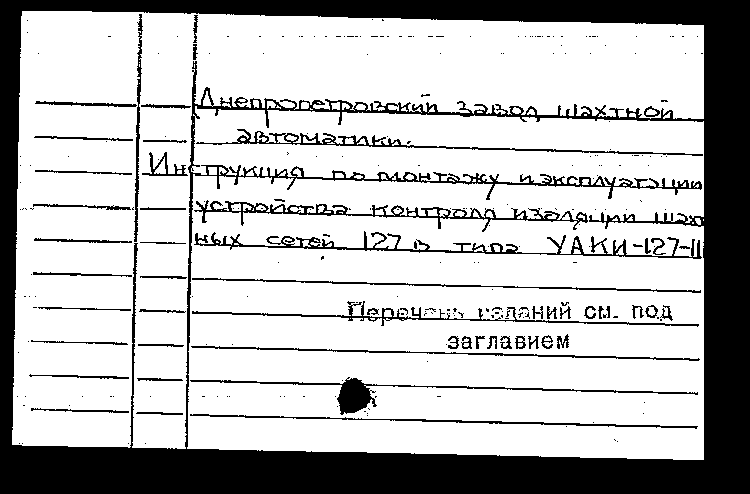 Днепропетровский завод шахтной
автоматики.
Инструкция по монтажу и эксплуатации
устройства контроля изоляции шахт
ных сетей 127 в типа УАКИ-127-П
Перечень изданий см. под
заглавием